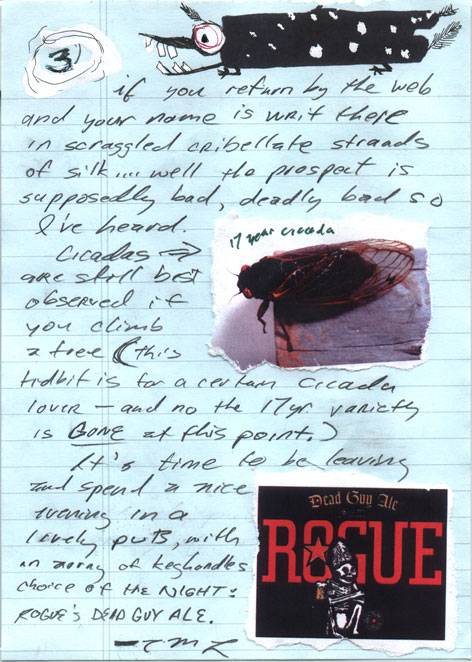 3
if you return by the web
and your name is writ there
in scraggled cribellate strands
of silk.... well the prospect is
supposedly bad, deadly bad so
I've heard.
17 year cicada
Cicadas →
are still best
observed if
you climb
a tree (this
tidbit is for a certain cicada
lover – and no the 17yr variety
is GONE at this point.)
It's time to be leaving
and spend a nice
evening in a
lovely pub, with
an array of keghandles
choice of the NIGHT:
ROGUE'S DEAD GUY ALE.
Dead Guy Ale
ROGUE